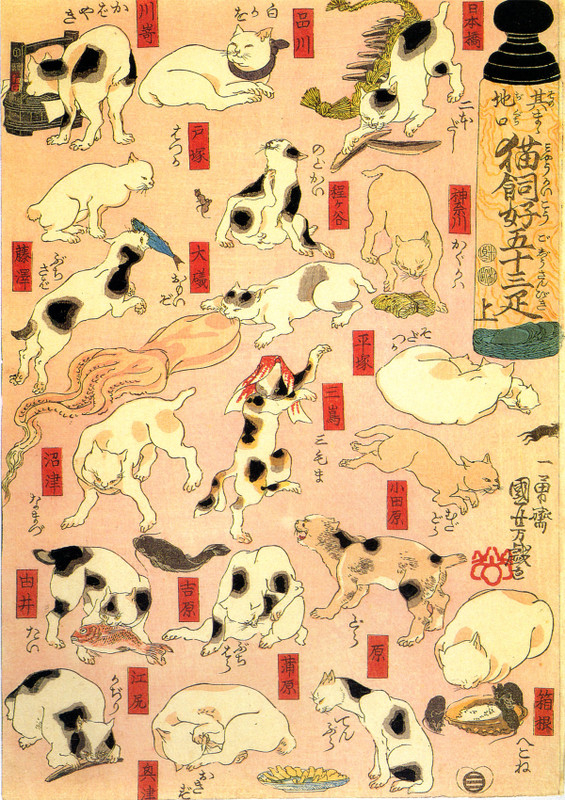 其まゝ
地口
猫飼好五十三疋
上
日本橋
二本だし
品川
白かを
川嵜
かばやき
神奈川
かぐかい
程ヶ谷
のどかい
戸塚
はつか
藤澤
ぶちさば
大磯
おもいぞ
平塚
そだつか
小田原
むだどら
箱根
へこね
三嶌
三毛ま
沼津
なまづ
原
どら
吉原
ぶちはら
蒲原
てんぷら
由井
たい
江尻
かぢり
奥津
おきず
一勇齋